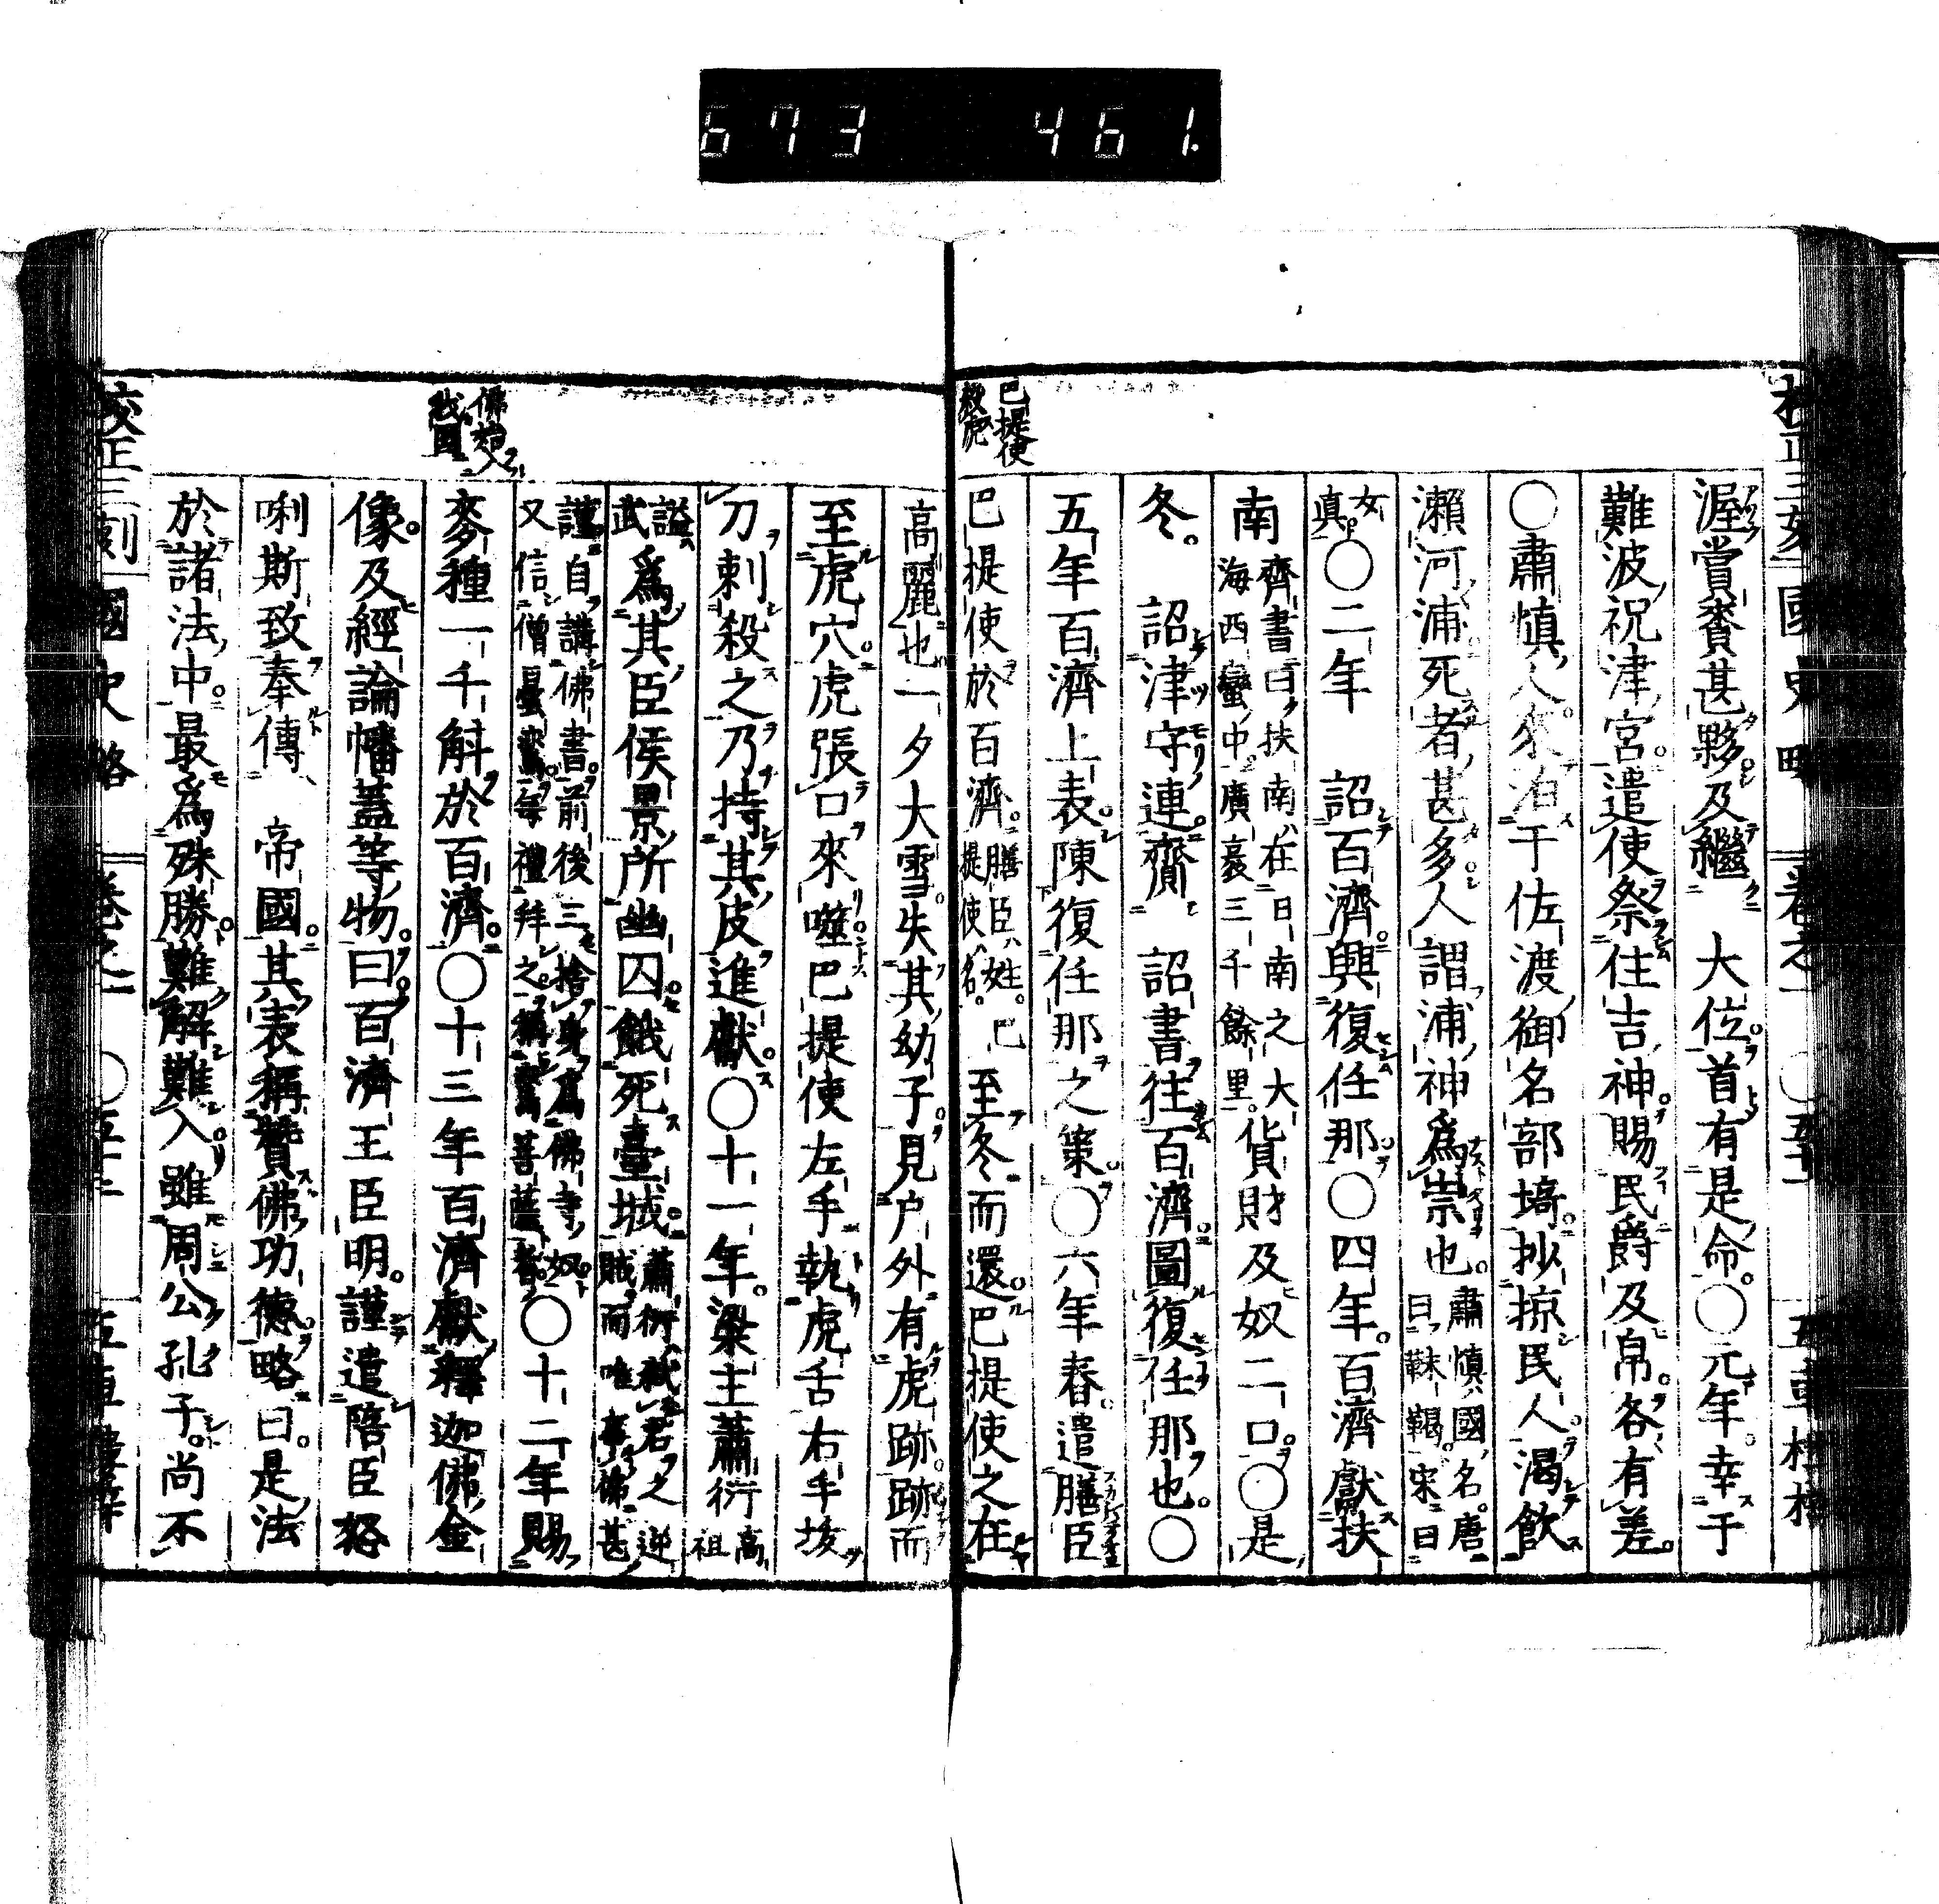 673 461.
巴提使
殺虎
渥賞賚甚夥及繼 大位首有是命○元年幸于
難波祝津宮遣使祭住吉神賜民爵及帛各有差
○肅慎人來泊于佐渡御名部埼抄掠民人渴飲
瀨河浦死者甚多人謂浦神爲祟也肅慎國名唐曰靺鞨宋曰
女真○二年 詔百濟興復任那○四年百濟獻扶
南齊書曰扶南在日南之大海西蠻中廣袤三千餘里貨財及奴二口○是
冬 詔津守連齎 詔書往百濟圖復任那也○
五年百濟上表陳復任那之策○六年春遣膳臣
巴提使於百濟膳臣姓巴提使名至冬而還巴提使之在
佛始入
我國
高麗也一夕大雪失其幼子見户外有虎跡跡而
至虎穴虎張口來噬巴提使左手執虎舌右手拔
刀刺殺之乃持其皮進獻○十一年梁主蕭衍高祖
武謚爲其臣侯景所幽囚餓死臺城蕭衍弑君之逆賊而唯事佛甚
謹自講佛書前後三捨身爲佛寺奴又信僧曇鸞每禮拜之稱鸞菩薩者○十二年賜
麥種一千斛於百濟○十三年百濟獻釋迦佛金
像及經論幡蓋等物曰百濟王臣明謹遣陪臣怒
唎斯致奉傳 帝國其表稱贊佛功德略曰是法
於諸法中最爲殊勝難解難入雖周公孔子尚不
校正三刻 國史略